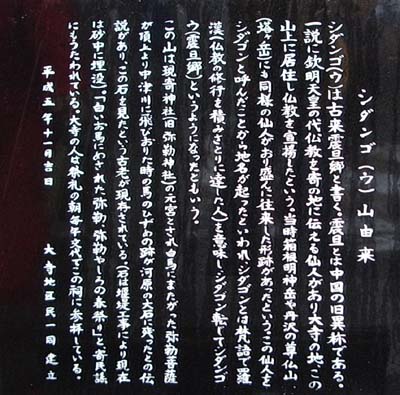 シダンゴ(ウ)山由来
シダンゴ(ウ)は古来震旦郷と書く。震旦とは中国の旧異称である。
一説に欽明天皇の代仏教を寄の地に伝える仙人があり大寺の地、この
山上に居住し仏教を宣揚したという。当時箱根明神岳や丹沢の尊仏山、
(塔ヶ岳)にも同様の仙人がおり盛んに往来した形跡があったというこの仙人を
シダゴンと呼んだことから地名が起ったといわれ、シダゴンとは梵語で羅
漢(仏教の修行を積みさとりに達した人)を意味し、シダゴン転じてシダンゴ
ウ(震旦郷)というようになったともいう。
この山は現寄神社(旧弥勒神社)の元宮とされ白馬にまたがった弥勒菩薩
が頂上より中津川に飛びおりた時その馬のひずめの跡が河原の大石に残ったとの伝
説があり、この石を見たという古老が現存されている。(石は堰堤工事により現在
は砂中に埋没)。「白いお馬にめされた弥勒、弥勒やしろの春祭り」と寄民謡
にもうたわれている。大寺の人は祭礼の朝毎年交代でこの祠に参拝している。
平成五年十一月吉日　大寺地区民一同建立